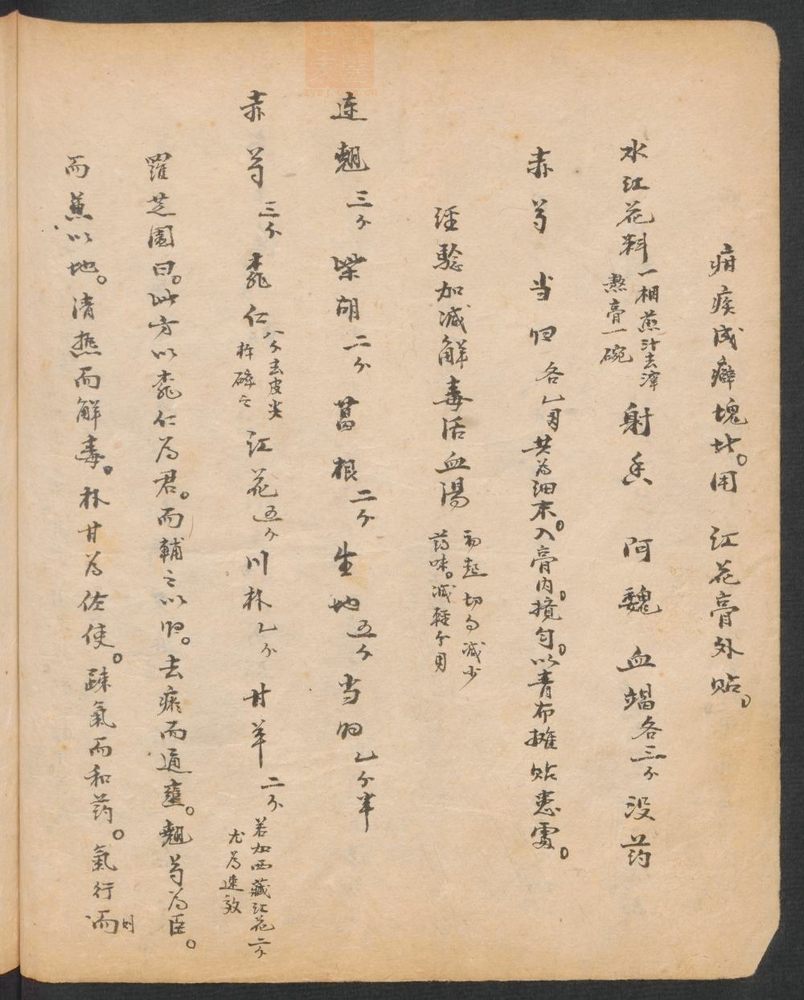 疳疾成癖塊者。用 江花膏外貼。
水江花料一相煎汁去滓熬膏一碗 射香 阿魏 血竭各三分 没药
赤芍 当归 各乙両 共為細末。入膏内。攪匀。以青布攤貼患處。
経驗加减解毒活血湯 初起切勿减少药味。减轻分両
連翹三分 柴胡二分 葛根二分 生地五分 当归乙分半
赤芍三分 桃仁八分去皮尖杵碎之 江花五分 川朴乙分 甘草二分 若加西藏江花二分尤為速效
羅芝園曰。此方以桃仁為君。而輔之以归。去瘀而通壅。翹芍為臣。
而兼以地。清热而解毒。朴甘為佐使。疎氣而和药。氣行而